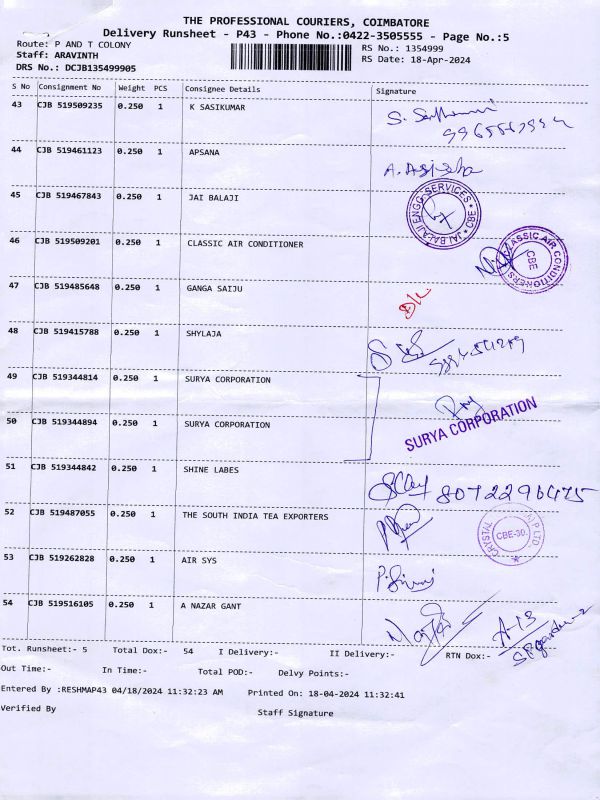 THE PROFESSIONAL COURIERS, COIMBATORE
Delivery Runsheet - P43 - Phone No.:0422-3505555 - Page No.:5
Route: P AND T COLONY
RS No.: 1354999
Staff: ARAVINTH
RS Date: 18-Apr-2024
DRS No.: DCJB135499905
S No Consignment No Weight PCS Consignee Details Signature
43 CJB 519509235 0.250 1 K SASIKUMAR
44 CJB 519461123 0.250 1 APSANA
45 CJB 519467843 0.250 1 JAI BALAJI
JAI BALAJI ENGG SERVICES * CBE *
46 CJB 519509201 0.250 1 CLASSIC AIR CONDITIONER
CLASSIC AIR CONDITIONERS CBE
47 CJB 519485648 0.250 1 GANGA SAIJU
48 CJB 519415788 0.250 1 SHYLAJA
49 CJB 519344814 0.250 1 SURYA CORPORATION
50 CJB 519344894 0.250 1 SURYA CORPORATION
SURYA CORPORATION
51 CJB 519344842 0.250 1 SHINE LABES
8072296475
52 CJB 519487055 0.250 1 THE SOUTH INDIA TEA EXPORTERS
CRYSTAL P LTD. CBE-30. *
53 CJB 519262828 0.250 1 AIR SYS
54 CJB 519516105 0.250 1 A NAZAR GANT
A-13
Tot. Runsheet:- 5 Total Dox:- 54 I Delivery:- II Delivery:- RTN Dox:-
Out Time:- In Time:- Total POD:- Delvy Points:-
Entered By :RESHMAP43 04/18/2024 11:32:23 AM Printed On: 18-04-2024 11:32:41
Verified By Staff Signature